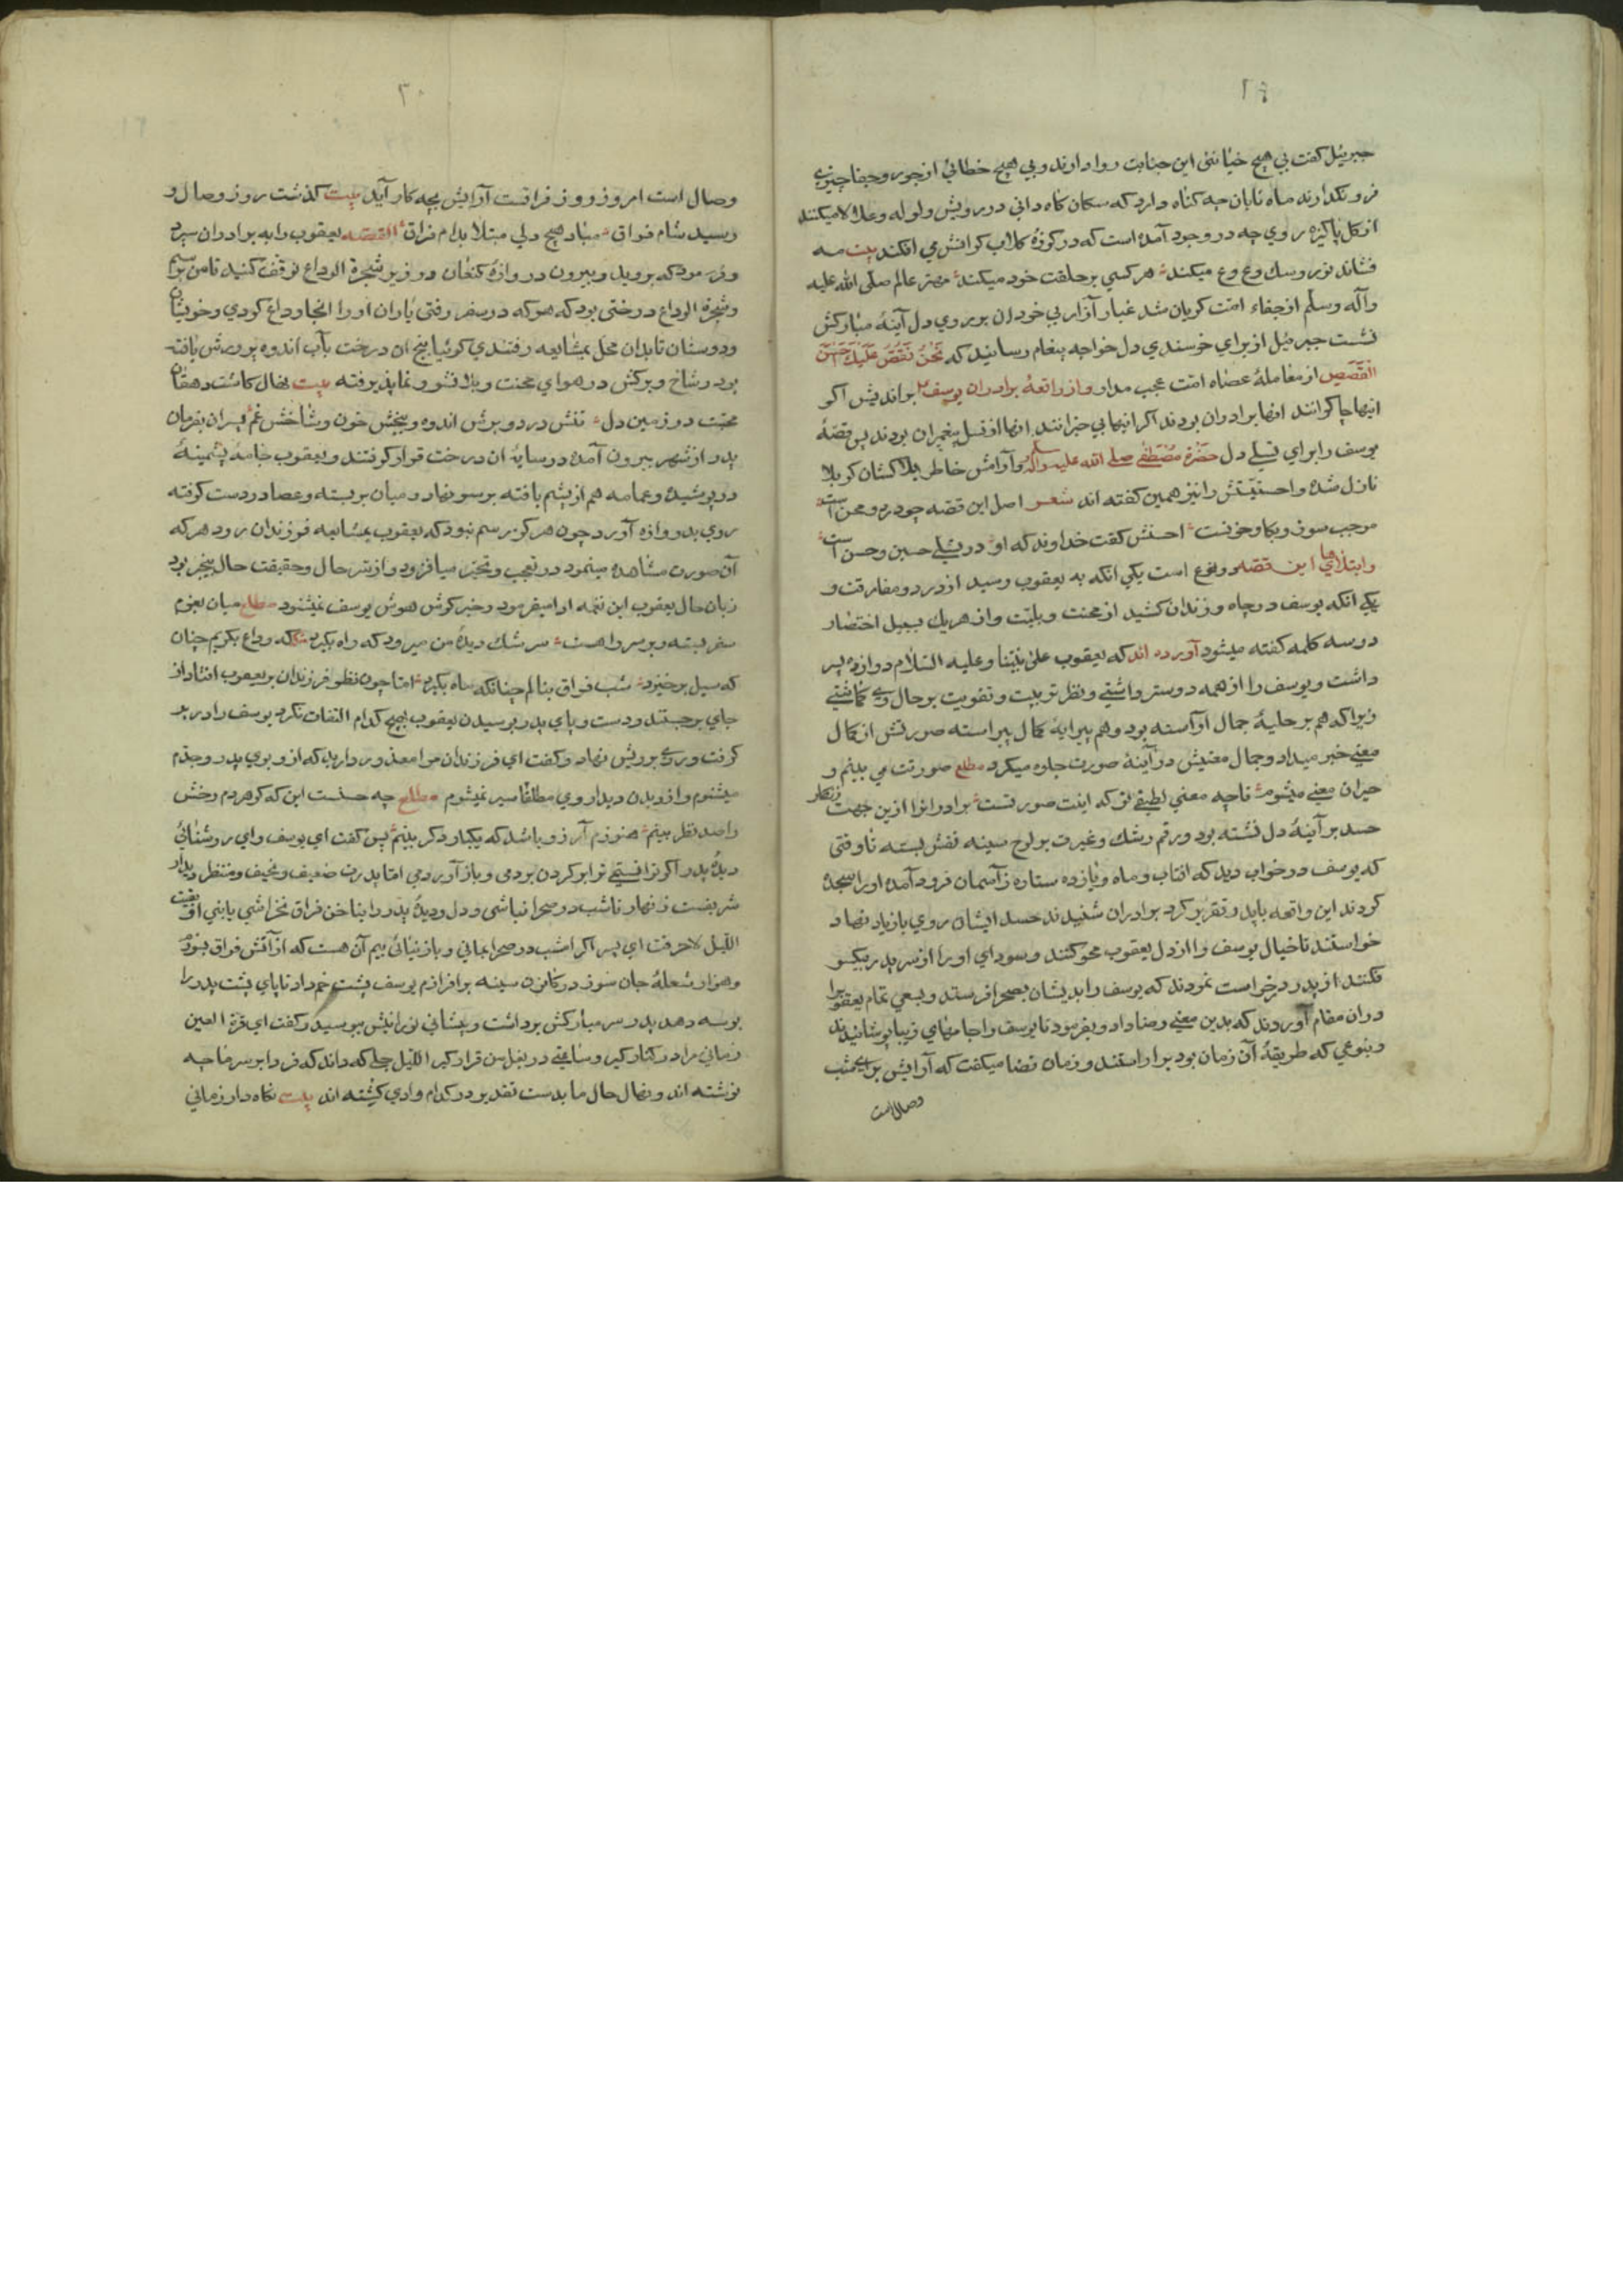 ۲۹
جبرئیل کفت بی هیچ خیانتی این جنایت روا دارند و بی هیچ خطائی از جور و جفا چیزی
فرو نکذارند ماه تابان چه کناه دارد که سکان کاه دانی در رویش ولوله و علالا میکنند
از کل پاکیزه روی چه در وجود آمده است که در کوزهٔ کلاب کر اتش می افکند بیت مه
فشاند نور و سك وع وع میکند هر کسی بر خلقت خود میکند مهتر عالم صلی الله علیه
وآله وسلم از جفاء امت کریان شد غبار آزار بی خردان بر روی دل آینهٔ مبارکش
نشست جبرئیل از برای خرسندی دل خواجه پیغام رسانید که نَحْنُ نَقُصُّ عَلَیْكَ اَحْسَنَ
القَصَصِ از معاملهٔ عصاه امت عجب مدار و از واقعهٔ برادران یوسف براندیش اکر
اینها چاکرانند انها برادران بودند اکر اینها بی خبرانند انها از نسل پیغمبران بودند پس قصهٔ
یوسف را برای تسلی دل حضرة مصطفی صلی الله علیه وآله وسلم و آرامش خاطر بلاکشان کربلا
نازل شده و احسنیتش را نیز همین کفته اند شعر اصل این قصه چو درد و محن است
موجب سوز و بکا و حزنست احسنش کفت خداوند که او در تسلی حسین و حسن است
و ابتلاهای این قصه دو نوع است یکی انکه به یعقوب رسید از درد و مفارقت و
یکی انکه یوسف در چاه و زندان کشید از محنت و بلیّت و از هر یك بسبیل اختصار
دو سه کلمه کفته میشود آورده اند که یعقوب علی نبیّنا و علیه السّلام دوازده پسر
داشت و یوسف را از همه دوستر داشتی و نظر تربیت و تقویت بر حال وی کماشتی
زیرا که هم بر حلیهٔ جمال آراسته بود و هم به پیرایهٔ کمال پیراسته صورتش از کمال
معنی خبر میداد و جمال معنیش در آینهٔ صورت جلوه میکرد مطلع صورتت می بینم و
حیران معنی میشوم تا چه معنی لطیفی تو که اینت صورتست برادرانرا ازین جهت زنکار
حسد بر آینهٔ دل نشسته بود و رقم رشك و غیرت بر لوح سینه نقش بسته تا وقتی
که یوسف در خواب دید که افتاب و ماه و یازده ستاره ز آسمان فرود آمده او را سجده
کردند این واقعه با پدر تقریر کرد برادران شنیدند حسد ایشان روی بازدیاد نهاد
خواستند تا خیال یوسف را از دل یعقوب محو کنند و سودای او را از سر پدر بیکسو
فکنند از پدر درخواست نمودند که یوسف را بدیشان بصحرا فرستد و بسعی تمام یعقوب را
دران مقام آوردند که بدین معنی رضا داد و بفرمود تا یوسف را جامهای زیبا پوشانیدند
و بنوعی که طریقهٔ آن زمان بود براراستند و زمان قضا میکفت که آرایش برای شب
وصال است
۳۰
وصال است امروز روز فراقست آرایش بچه کار آید بیت کذشت روز وصال و
رسید شام فراق مباد هیچ دلی مبتلا بدام فراق القصّه یعقوب را به برادران سپرد
و فرمود که بروید و بیرون دروازهٔ کنعان در زیر شجرة الوداع توقف کنید تا من برسم
و شجرة الوداع درختی بود که هر که در سفر رفتی یاران او را انجا وداع کردی و خویشان
و دوستان تا بدان محل بمشایعه رفتندی کوئیا بیخ ان درخت بآب اندوه پرورش یافته
بود و شاخ و برکش در هوای محنت و بلا نشو و نما پذیرفته بیت نهال کاشت دهقان
محبّت در زمین دل تنش درد و برش اندوه و بیخش خون و شاخش غم پسران بفرمان
پدر از شهر بیرون آمده در سایهٔ ان درخت قرار کرفتند و یعقوب جامهٔ پشمینهٔ
در پوشیده و عمامه هم از پشم بافته بر سر نهاد و میان بر بسته و عصا در دست کرفته
روی بدروازه آورد چون هرکز رسم نبود که یعقوب بمشایعه فرزندان رود هر که
آن صورت مشاهده مینمود در تعجب و تحیّر میافزود و از سّر حال و حقیقت حال بیخبر بود
زبان حال یعقوب این نغمه ادا میفرمود و خبر کوش هوش یوسف نمیشنود مطلع میان بعزم
سفر بسته و بر سر راهست سرشك دیدهٔ من میرود که راه بکیرد که وداع بکریم چنان
که سیل برخیزد شب فراق بنالم چنانکه ماه بکیرد امّا چون نظر فرزندان بر یعقوب افتاد از
جای برجستند و دست و پای پدر بوسیدن یعقوب بهیچ کدام التفات نکرد یوسف را در بر
کرفت و روی برویش نهاد و کفت ای فرزندان مرا معذور دارید که از و بوی پدر و جدّم
میشنوم و از و بدن و دیدار وی مطلقا سیر نمیشوم مطلع چه حسنست این که کر هر دم رخش
را صد نظر بینم هنوزم آرزو باشد که یکبار دکر بینم پس کفت ای یوسف و ای روشنائی
دیدهٔ پدر اکر توانستمی ترا بر کردن بردمی و باز آوردمی امّا پدرت ضعیف و نحیف و منتظر دیدار
شریفست زنهار تا شب در صحرا نباشی و دل و دیدهٔ پدر را بناخن فراق نخراشی یا بنی افتیت
اللیل لاحرقت ای پسر اکر امشب در صحرا بمانی و باز نیائی بیم آن هست که از آتش فراق بسوزم
و هزار شعلهٔ جان سوز در کانون سینه برافرازم یوسف پشت خم داد تا پای پشت پدر را
بوسه دهد پدر سر مبارکش برداشت و پیشانی نورانیش ببوسید و کفت ای قرة العین
زمانی مرا در کنار کیر و ساعتی در بغل من قرار کیر اللیل حبلی که داند که فردا بر سر ما چه
نوشته اند و نهال حال ما بدست نقد بر در کدام وادی کشته اند بیت نکاه دار زمانی